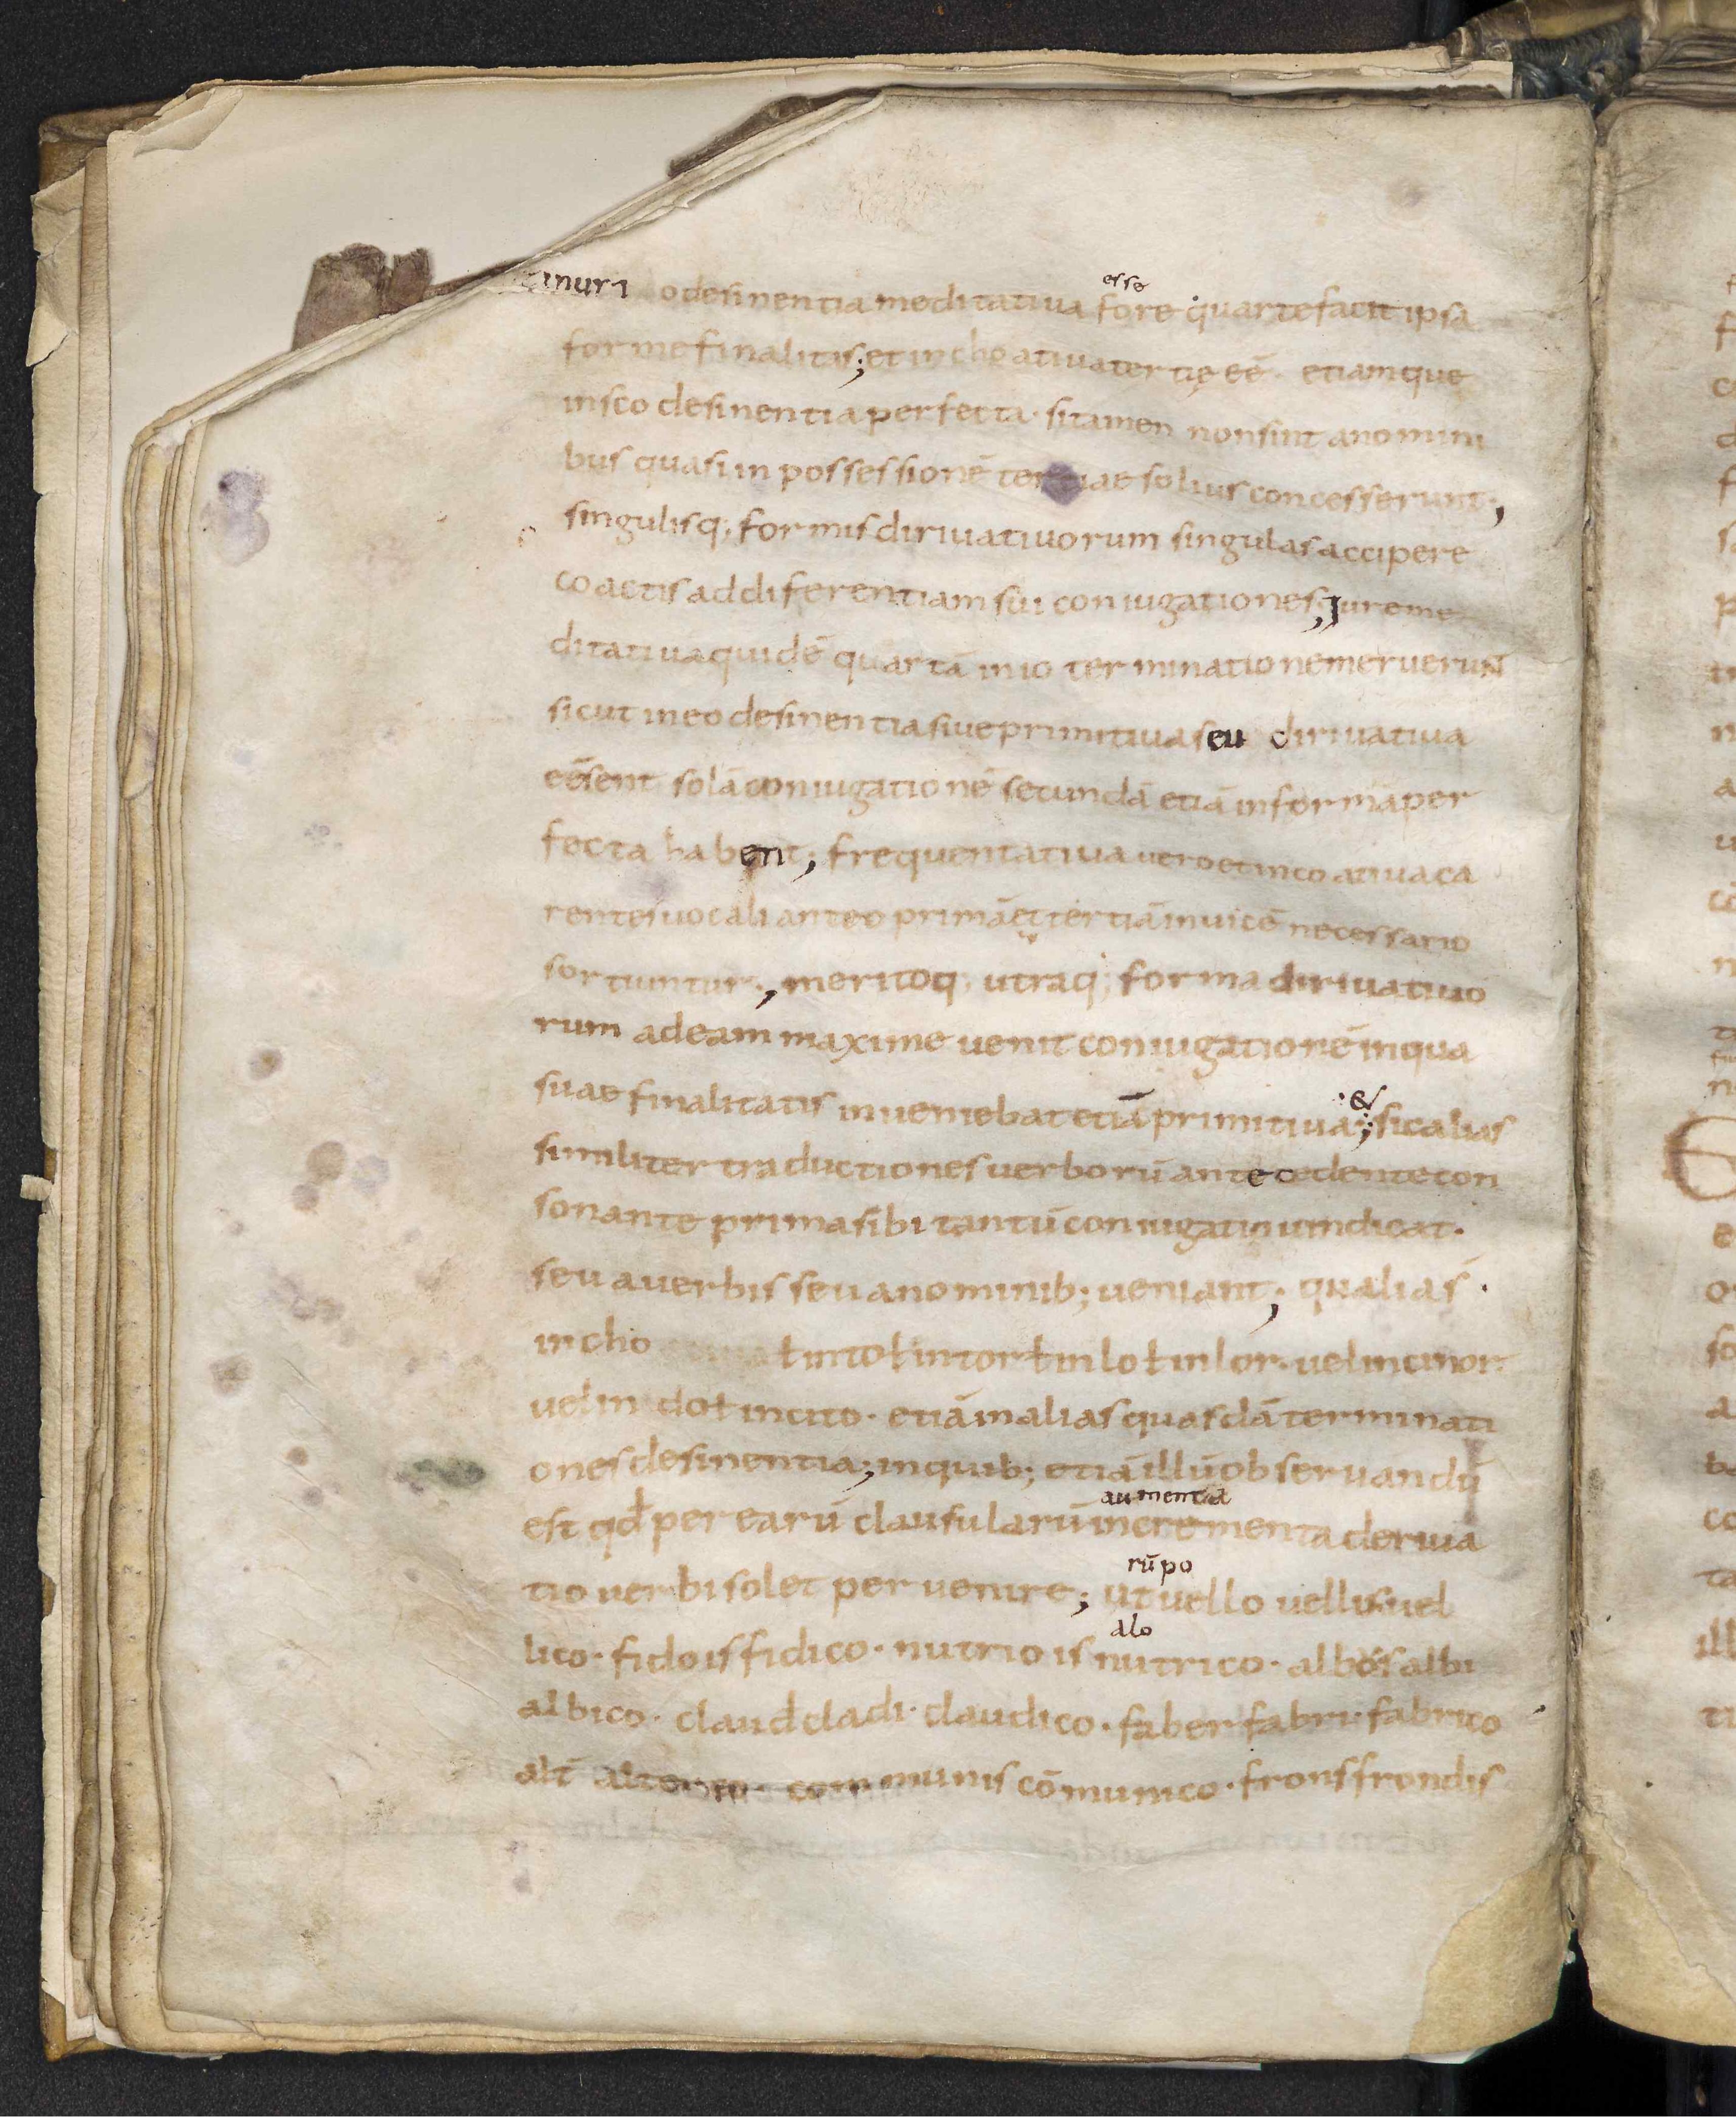 inuri odesinentia meditativa fore quarte facit ipsa
esse
forme finalitas; et inchoativa tertię eē · etiam que
in sco desinentia perfecta · si tamen non sint a nomini
bus quasi in possessionē tertiae solius concesserunt ·,
singulisq; formis dirivativorum singulas accipere
coactis ad diferentiam sui coniugationes; Jure me
ditativa quidē quartā in io terminatione meruerun
sicut in eo desinentia sive primitiva seu dirivativa
eēsent solā coniugationē secundā etiā in formā per
fecta habent; frequentativa vero et incoativa ca
rentes vocali ante o primā et tertiā invicē necessario
sortiuntur ·, meritoq; utraq; forma dirivativo
rum ad eam maxime venit coniugationē in qua
suae finalitatis inveniebat etiā primitiva; sic alias
·&
similiter traductiones verborū antecedente con
sonante prima sibi tantū coniugatio vindicat ·
seu a verbis seu a nominib; veniant; qualia s ·
incho ł in to ł in tor ł in lo ł in lor · vel in cinor
vel in do ł in cito · etiā in alias quasdā terminati
ones desinentia; in quib; etiā illū observandū
est qđ per earū clausularū incrementa deriva
aumenta
tio verbi solet pervenire; ut vello vellis vel
rūpo
lico · fido is fidico · nutrio is nutrico · albos albi
alo
albico · claud cladi · claudico · faber fabri · fabrico
alt̄ communis cōmunico · frons frondis